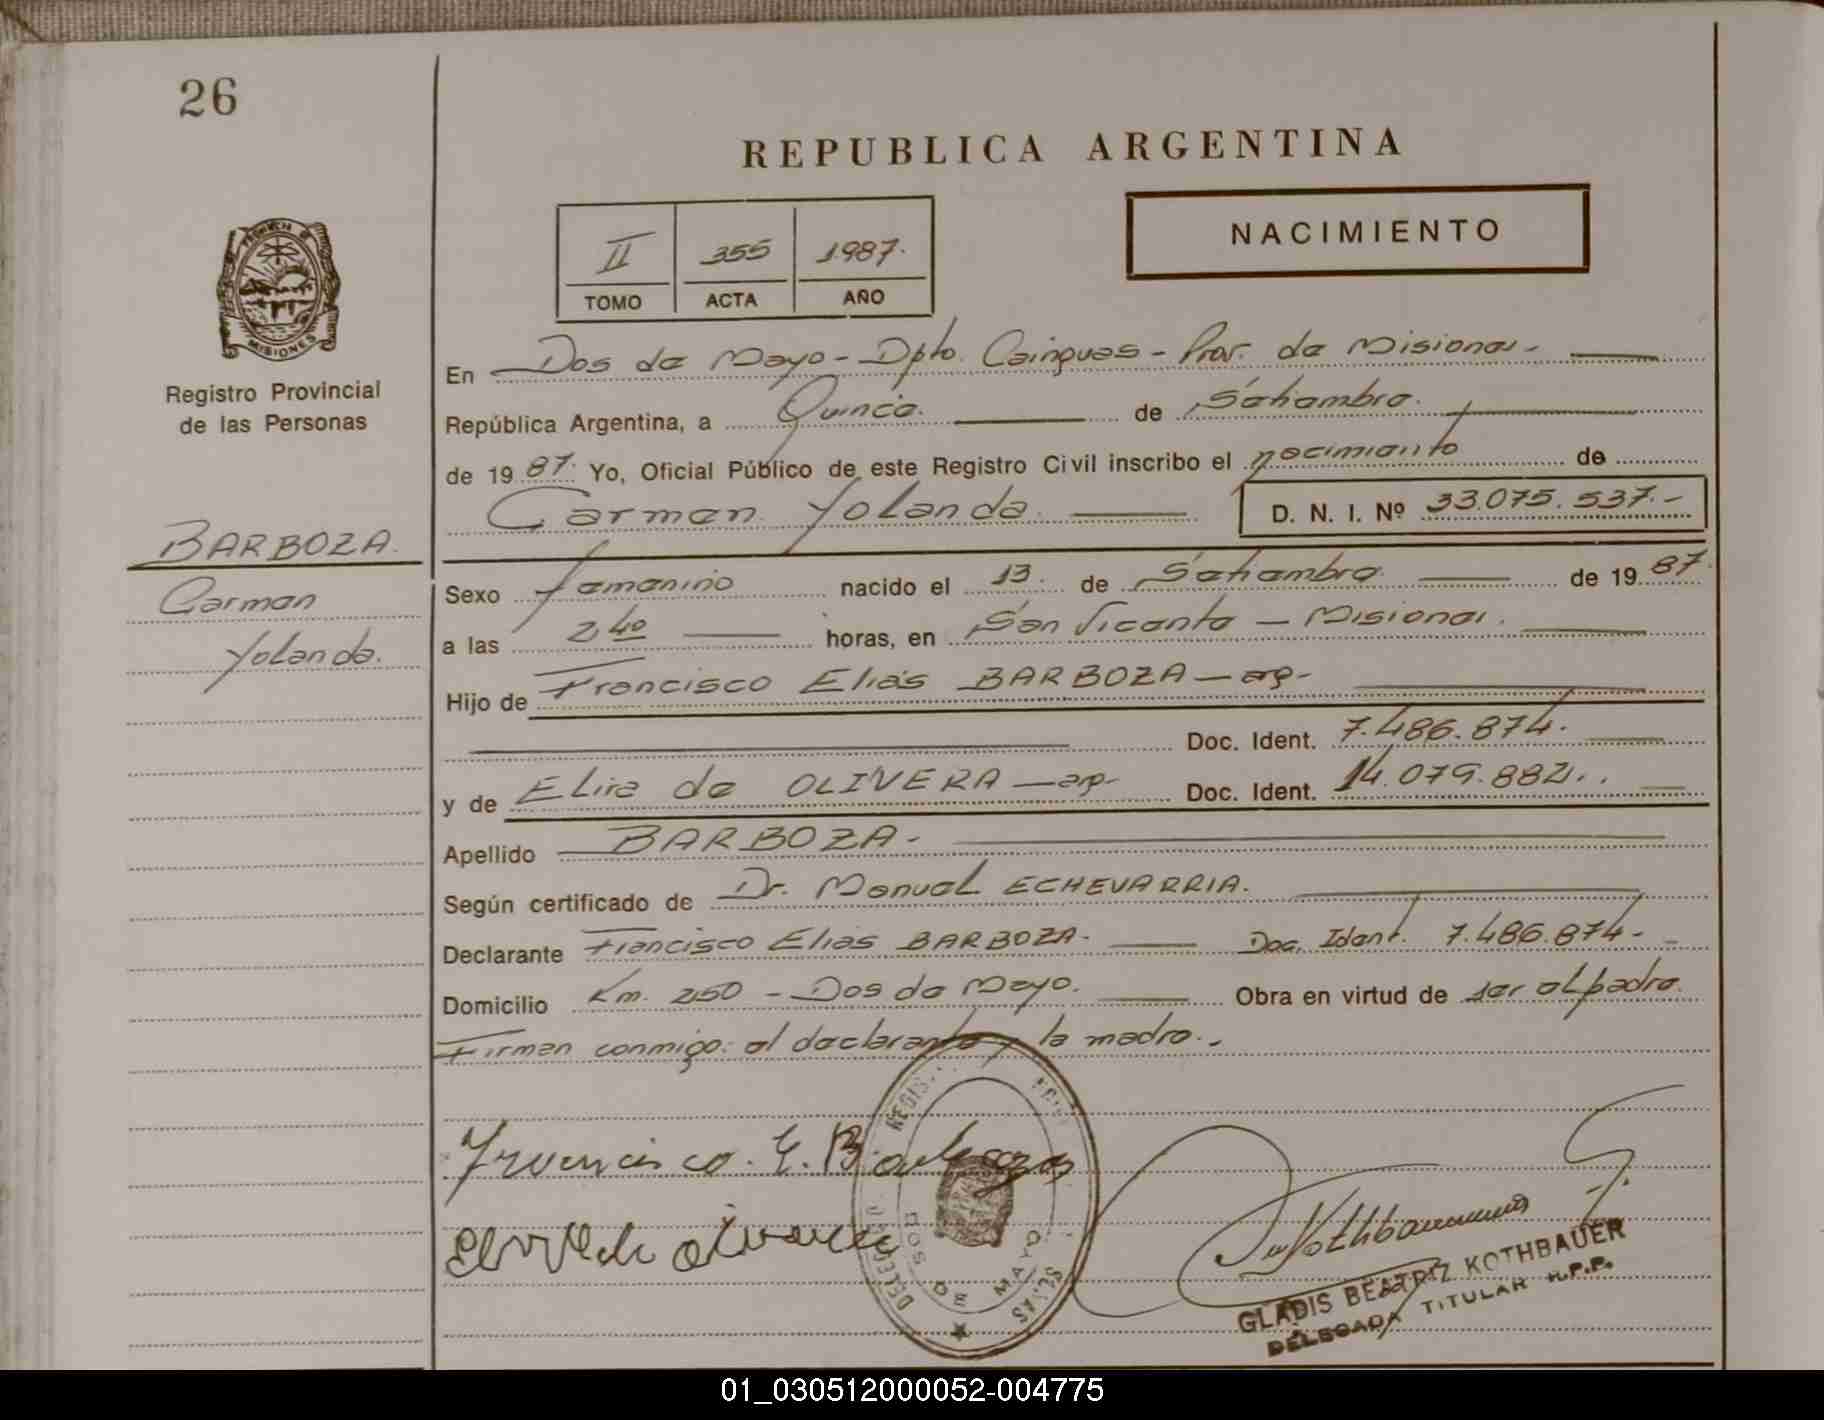 26
REPUBLICA ARGENTINA
II 355 1987.
TOMO ACTA AÑO
NACIMIENTO
MISIONES
Registro Provincial
de las Personas
BARBOZA.
Carmen
Yolanda.
En Dos de Mayo - Dpto. Cainguas - Prov. de Misiones -
República Argentina, a Quince. de Setiembre.
de 19 87. Yo, Oficial Público de este Registro Civil inscribo el nacimiento de
Carmen Yolanda. D. N. I. Nº 33.075.537.-
Sexo femenino nacido el 13. de Setiembre. de 19 87.
a las 2 40 horas, en San Vicente - Misiones.
Hijo de Francisco Elias BARBOZA - arg -
Doc. Ident. 7.486.874.
y de Elira de OLIVERA - arg - Doc. Ident. 14.079.882..
Apellido BARBOZA -
Según certificado de Dr. Manuel ECHEVARRIA.
Declarante Francisco Elias BARBOZA - Doc. Ident. 7.486.874 -
Domicilio Km. 250 - Dos de Mayo. Obra en virtud de ser el padre.
Firman conmigo: el declarante y la madre. -
Francisco. E. Barboza
de
DOS DE MAYO
GLADIS BEATRIZ KOTHBAUER
DELEGADA TITULAR R.P.P.
01_030512000052-004775